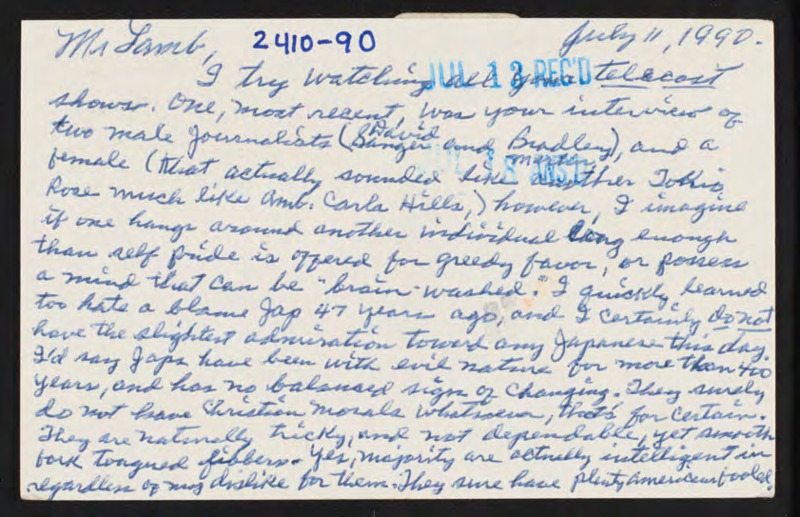 Mr Lamb, 2410-90 July 11, 1990.
JUL 13 REC'D
I try watching all your telecast
shows. One, most recent, was your interview of
two male journalists (David Sanger and Bradley Martin), and a
female (that actually sounded like another Tokio
Rose much like Amb. Carla Hills,) however, I imagine
if one hangs around another individual long enough
than self pride is offered for greedy favor, or possess
a mind that can be "brain-washed". I quickly learned
too hate a blame Jap 47 years ago, and I certainly do not
have the slightest admiration toward any Japanese this day.
I'd say Japs have been with evil nature for more than 400
years, and has no balanced sign of changing. They surely
do not have Christian morals whatsoever, that's for certain.
They are naturally tricky, and not dependable, yet smooth
fork tongued fibbers. Yes, majority are actually intelligent in
regardless of my dislike for them. They sure have plenty americans fooled.